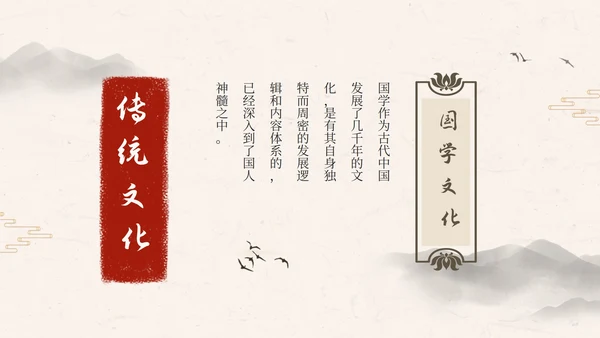 国学文化
国学作为古代中国
发展了几千年的文
化，是有其自身独
特而周密的发展逻
辑和内容体系的，
已经深入到了国人
神髓之中。
传统文化